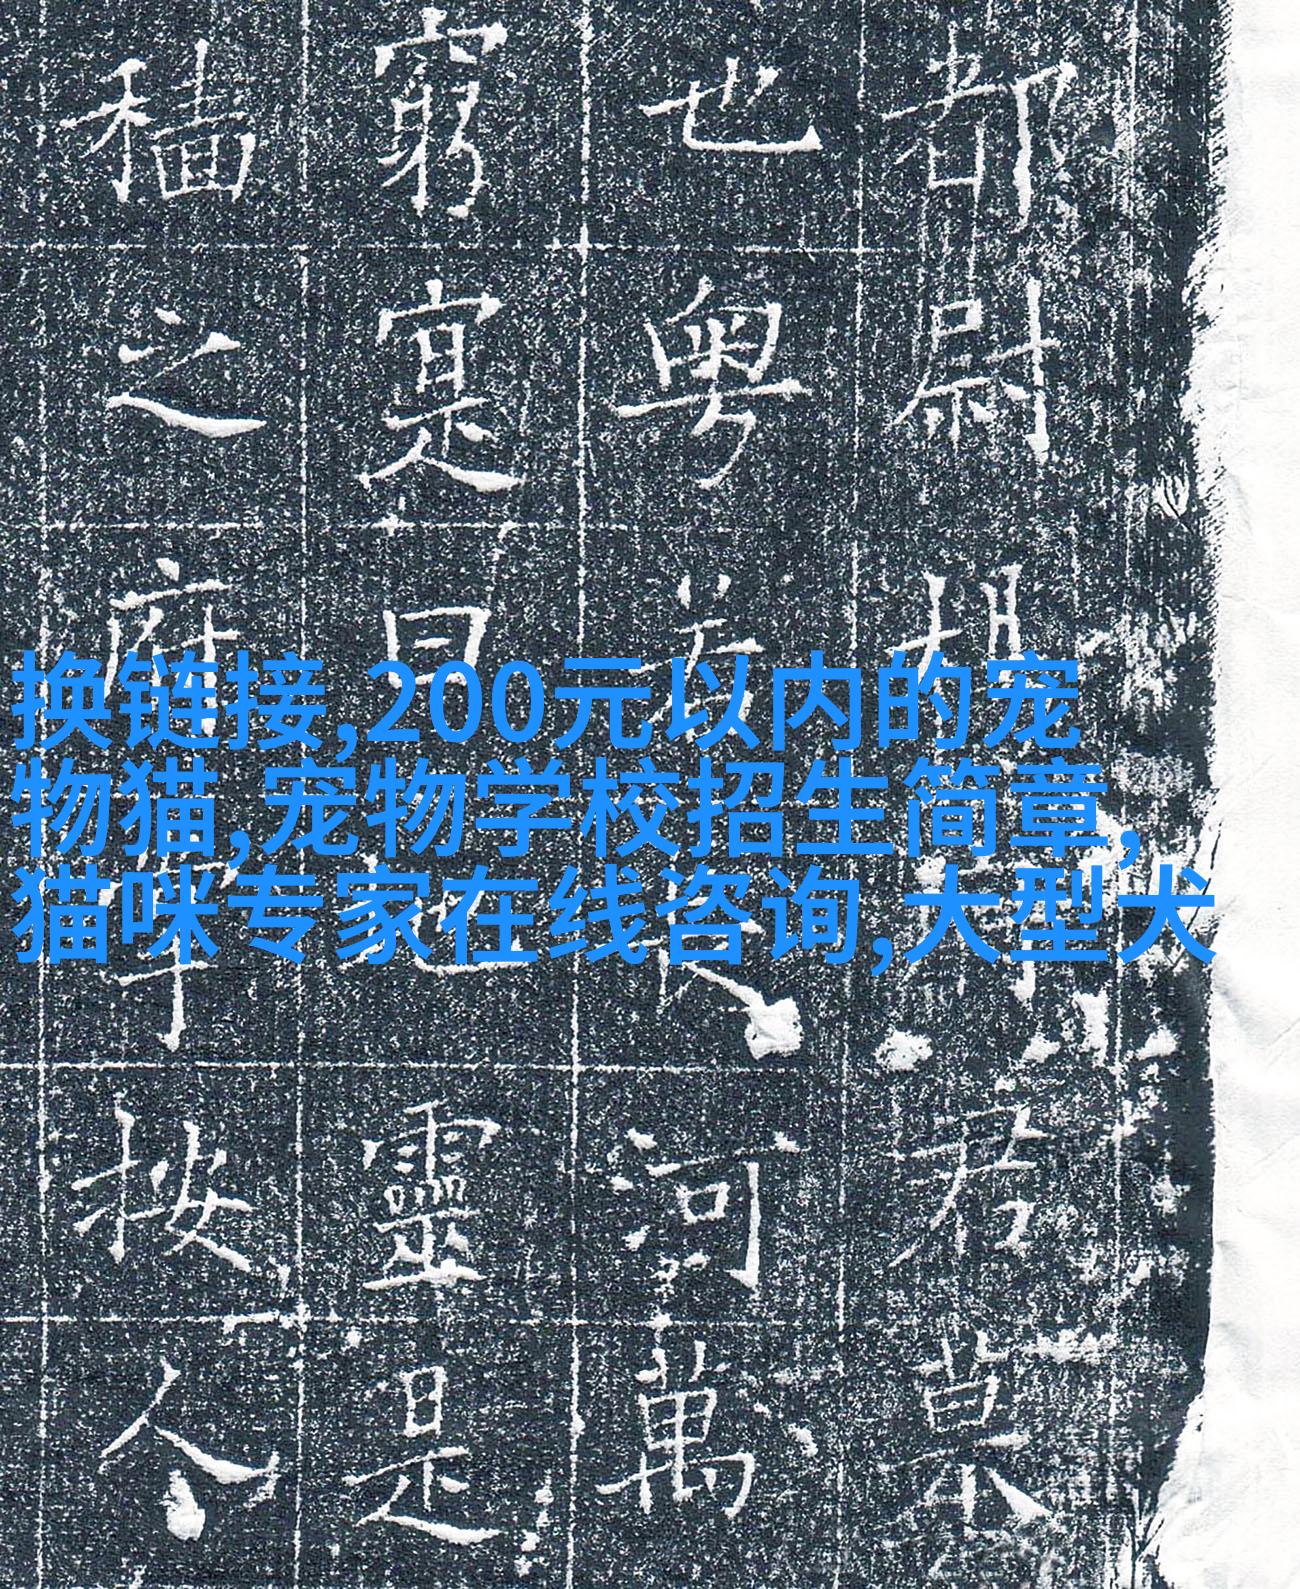 换链接,200元以内的宠
物猫,宠物学校招生简章,
猫咪专家在线咨询,大型犬
都尉胡君
也粤若河萬
窮寔曰靈是
穡之府按人